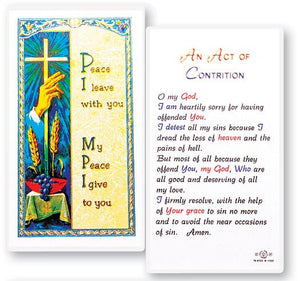 Peace
I leave
with you
My
Peace
I give
to you
An Act of
Contrition
O my God,
I am heartily sorry for having
offended You.
I detest all my sins because I
dread the loss of heaven and the
pains of hell.
But most of all because they
offend You, my God, Who are
all good and deserving of all
my love.
I firmly resolve, with the help
of Your grace to sin no more
and to avoid the near occasions
of sin. Amen.